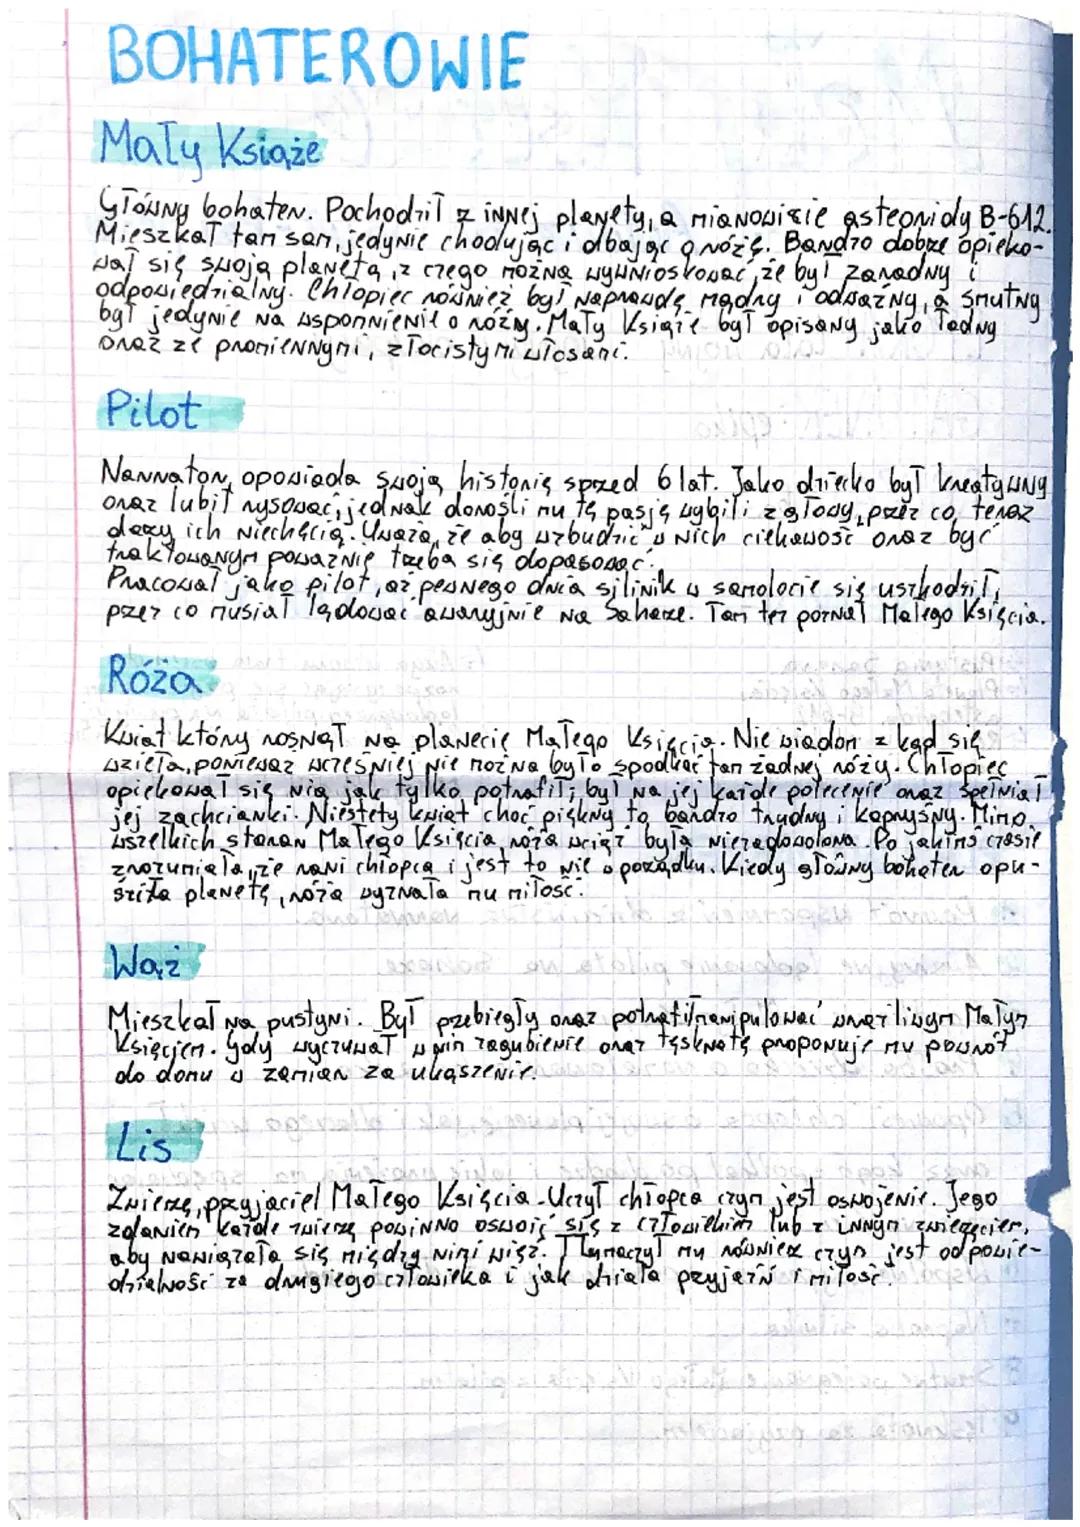 BOHATEROWIE
Mały Książe
Główny bohater. Pochodził z innej planety, a mianowicie asteroidy B-612.
Mieszkał tam sam, jedynie chodując i dbając o różę. Bardzo dobrze opieko-
wał się swoją planetą, z czego można wywnioskować, że był zaradny i
odpowiedzialny. Chłopiec również był naprawdę mądry i odważny, a smutny
był jedynie na wspomnienie o róży. Mały Książe był opisany jako ładny
oraz ze promiennymi, złocistymi włosami.
Pilot
Narrator, opowiada swoją historię sprzed 6 lat. Jako dziecko był kreatywny
oraz lubił rysować, jednak dorośli mu tę pasję wybili z głowy, przez co teraz
darzy ich niechęcią. Uważa, że aby wzbudzić w nich ciekawość oraz być
traktowanym poważnie trzeba się dopasować.
Pracował jako pilot, aż pewnego dnia silinik w samolocie się uszkodził,
przez co musiał lądować awaryjnie na Saharze. Tam też poznał Małego Księcia.
Róża
Kwiat który rosnął na planecie Małego Księcia. Nie wiadom z kąd się
wzięła, ponieważ wcześniej nie można było spodkać tam żadnej róży. Chłopiec
opiekował się nią jak tylko potrafił; był na jej każde polecenie oraz spełniał
jej zachcianki. Niestety kwiat choć piękny to bardzo trudny i kapryśny. Mimo
wszelkich starań Małego Księcia róża wciąż była niezadowolona. Po jakimś czasie
zrozumiała, że rani chłopca i jest to nie w porządku. Kiedy główny bohater opu-
ściła planetę, róża wyznała mu miłość.
Wąż
Mieszkał na pustyni. Był przebiegły oraz potrafił manipulować wrażliwym Małym
Księciem. Gdy wyczuwał w nim zagubienie oraz tęsknotę proponuje mu powrót
do domu w zamian za ukąszenie.
Lis
Zwierzę, przyjaciel Małego Księcia. Uczył chłopca czym jest oswojenie. Jego
zdaniem każde zwierzę powinno oswoić się z człowiekiem lub z innym zwierzęciem,
aby nawiązała się między nimi więź. Tłumaczył mu również czym jest odpowie-
dzialność za drugiego człowieka i jak działa przyjaźń i miłość.